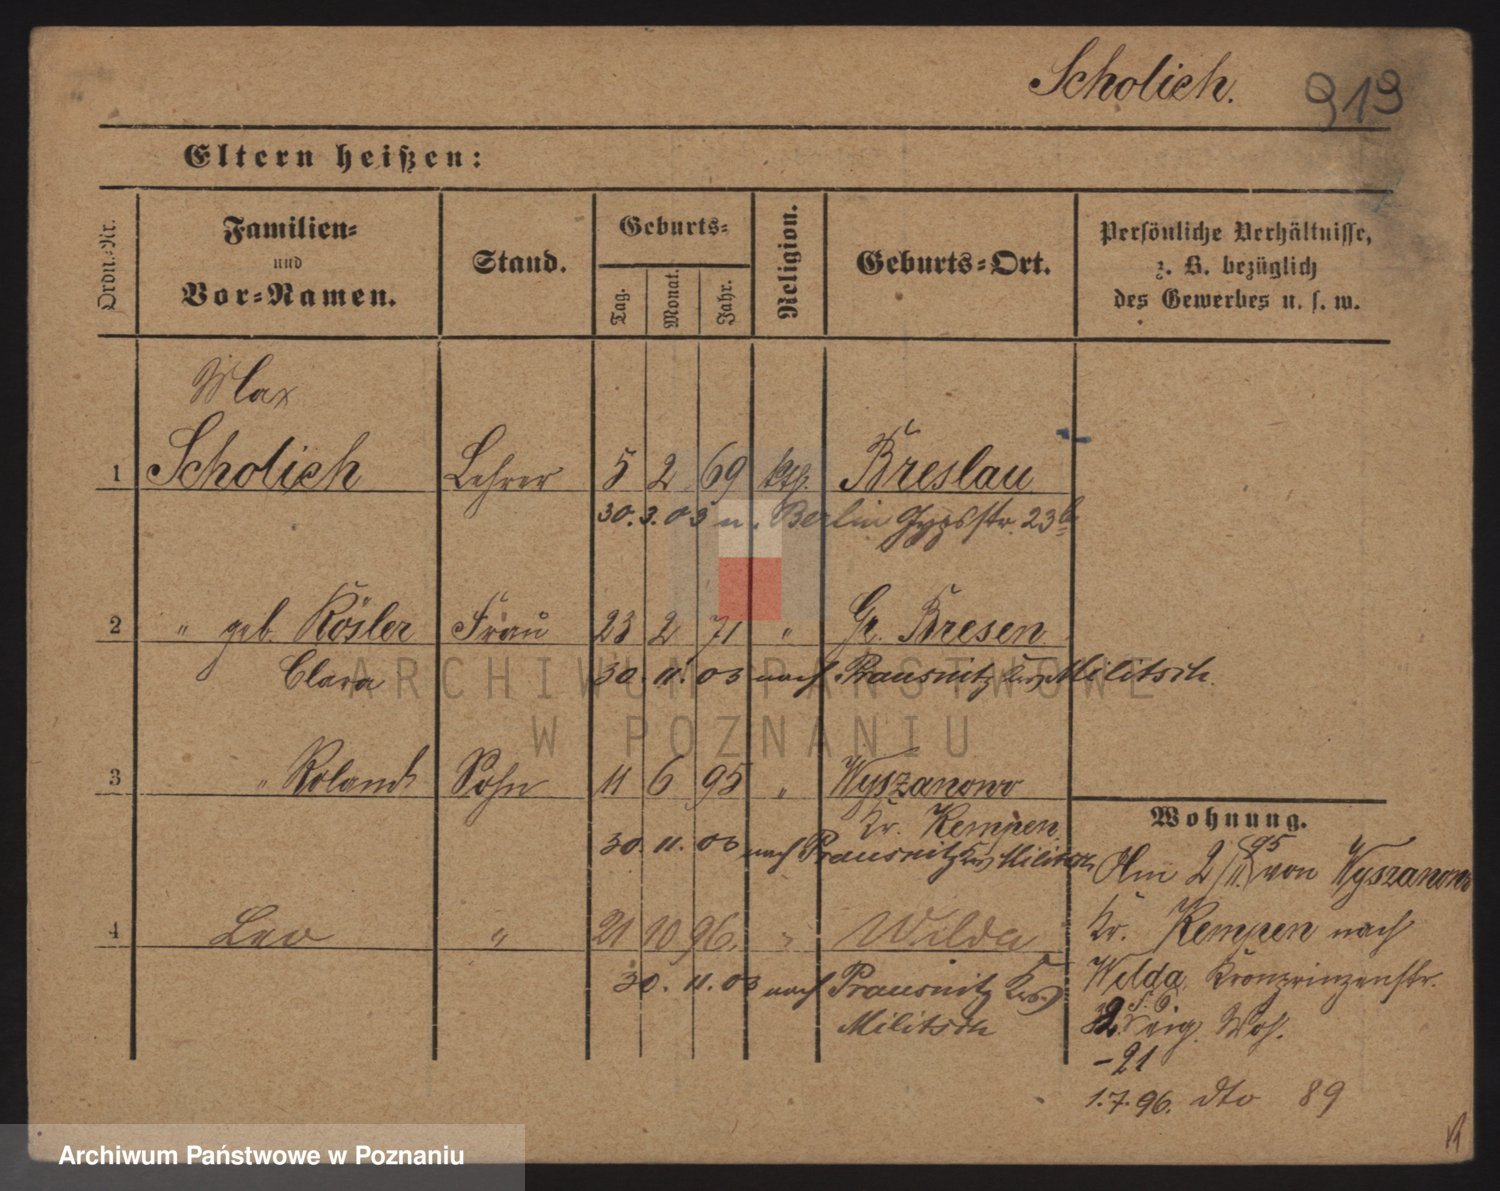 Scholich. 919
Eltern heißen:
Ordn.-Nr.
Familien-
und
Vor-Namen.
Stand.
Geburts-
Tag.
Monat.
Jahr.
Religion.
Geburts-Ort.
Persönliche Verhältnisse,
z. B. bezüglich
des Gewerbes u. s. w.
Max
1 Scholich Lehrer 5 2 69 kth. Breslau
30. 3. 03 n. Berlin Gypsstr. 23
2 " geb. Rösler Frau 23 2 71 " Gr. Bresen
Clara 30. 11. 03 nach Prausnitz Krs. Militsch
3 " Roland Sohn 11 6 95 " Wyszanowo
Kr. Kempen
30. 11. 03 nach Prausnitz Krs Militsch
4 Leo " 21 10 96. " Wilda
30. 11. 03 nach Prausnitz Krs.
Militsch
Wohnung.
Am 2/11 95 von Wyszanowo
Kr. Kempen nach
Wilda Kronprinzenstr.
eig. Woh.
- 21
1.7.96. dto 89
ARCHIWUM PAŃSTWOWE
W POZNANIU
Archiwum Państwowe w Poznaniu